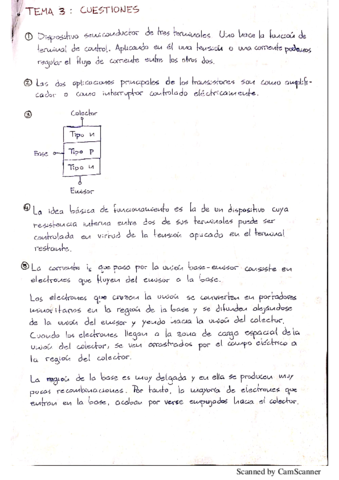 TEMA 3: CUESTIONES
① Dispositivo semiconductor de tres terminales. Uno hace la función de
terminal de control. Aplicando en él una tensión o una corriente podemos
regular el flujo de corriente entre los otros dos.
② Las dos aplicaciones principales de los transistores son como amplifi-
cador o como interruptor controlado eléctricamente.
③
Colector
Tipo n
Base
Tipo p
Tipo n
Emisor
④ La idea básica de funcionamiento es la de un dispositivo cuya
resistencia interna entre dos de sus terminales puede ser
controlada en virtud de la tensión aplicada en el terminal
restante.
⑤ La corriente que pasa por la unión base-emisor consiste en
electrones que fluyen del emisor a la base.
Los electrones que cruzan la unión se convierten en portadores
minoritarios en la región de la base y se difunden alejándose
de la unión del emisor y yendo hacia la unión del colector.
Cuando los electrones llegan a la zona de carga espacial de la
unión del colector, se ven arrastrados por el campo eléctrico a
la región del colector.
La región de la base es muy delgada y en ella se producen muy
pocas recombinaciones. Por tanto, la mayoría de electrones que
entran en la base, acaban por verse empujados hacia el colector.
Scanned by CamScanner